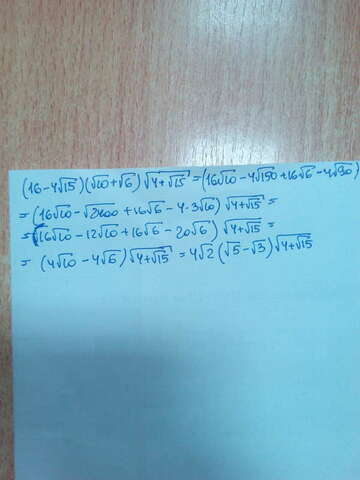 (16-4√15)(√10+√6)√4+√15 = (16√10-4√150+16√6-4√90)
= (16√10-√2400+16√6-4·3√10)√4+√15 =
= (16√10-12√10+16√6-20√6)√4+√15 =
= (4√10-4√6)√4+√15 = 4√2(√5-√3)√4+√15